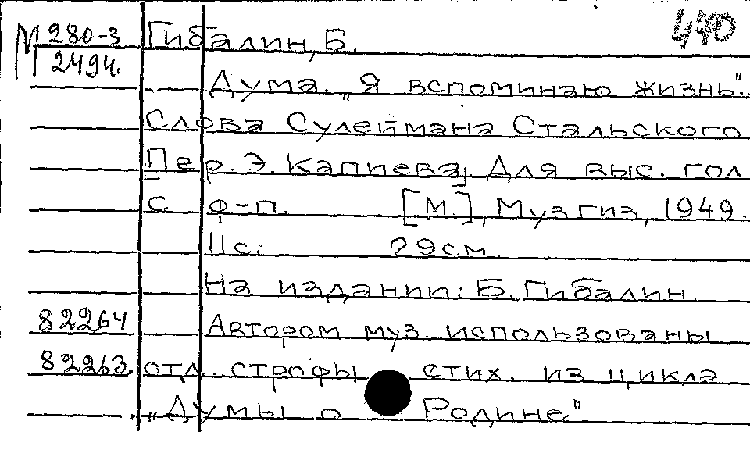 М 280-3 Гибалин, Б. 440
2494.
Дума. „Я вспоминаю жизнь".
Слова Сулеймана Стальского
Пер. Э. Капиева, Для выс. гол
с ф-п. [М.], Музгиз, 1949.
11с. 29см.
На издании: Б. Гибалин
82264 Автором муз. использованы
82263 отд. строфы стих. из цикла
„Думы о Родине"